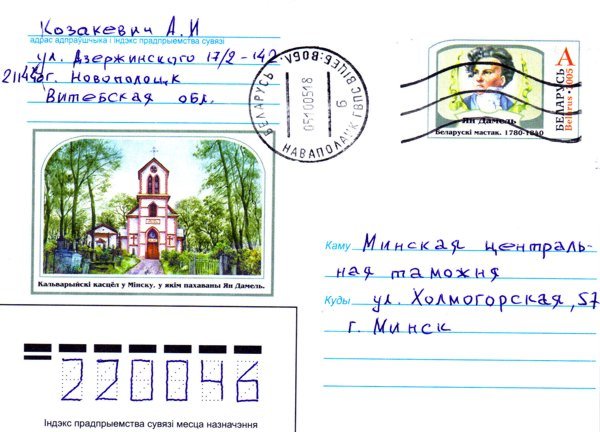 Козакевич А.И
адрас адпраўшчыка і індэкс прадпрыемства сувязі
ул. Дзержинского 17/2 - 142
211440 г. Новополоцк
Витебская обл.
БЕЛАРУСЬ
НАВАПОЛАЦК
051005 18
Б
А
БЕЛАРУСЬ
Belarus · 2005
Ян Дамель
Беларускі мастак. 1780-1840
Кальварыйскі касцёл у Мінску, у якім пахаваны Ян Дамель.
Каму Минская централь-
ная таможня
Куды ул. Холмогорская, 57
г. Минск
220046
Індэкс прадпрыемства сувязі месца назначэння